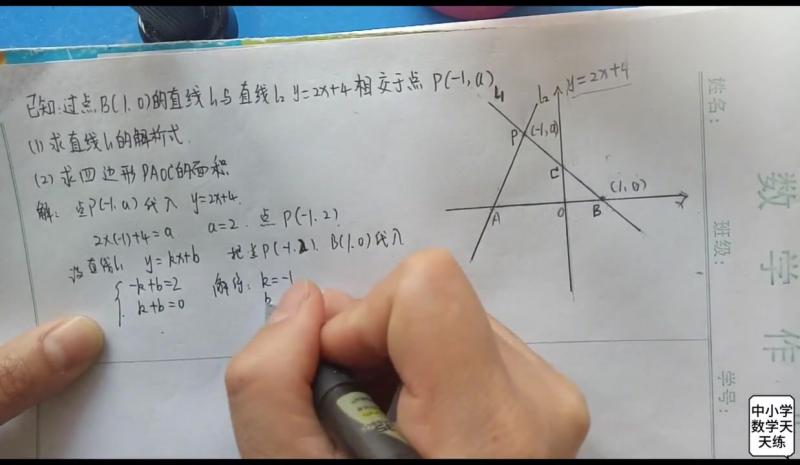 已知:过点B(1,0)的直线l₁与直线l₂ y=2x+4相交于点 P(-1,a)
(1) 求直线l₁的解析式.
(2) 求四边形PAOC的面积
解: 点P(-1,a)代入 y=2x+4.
2x(-1)+4=a a=2. 点P(-1,2)
设直线l₁ y=kx+b 把点P(-1,2) B(1,0)代入
-k+b=2 解得: k=-1
k+b=0 b
l₁
l₂
y=2x+4
P
(-1,a)
C
(1,0)
A
O
B
x
姓名:
班级:
学号:
数学作
中小学
数学天
天练